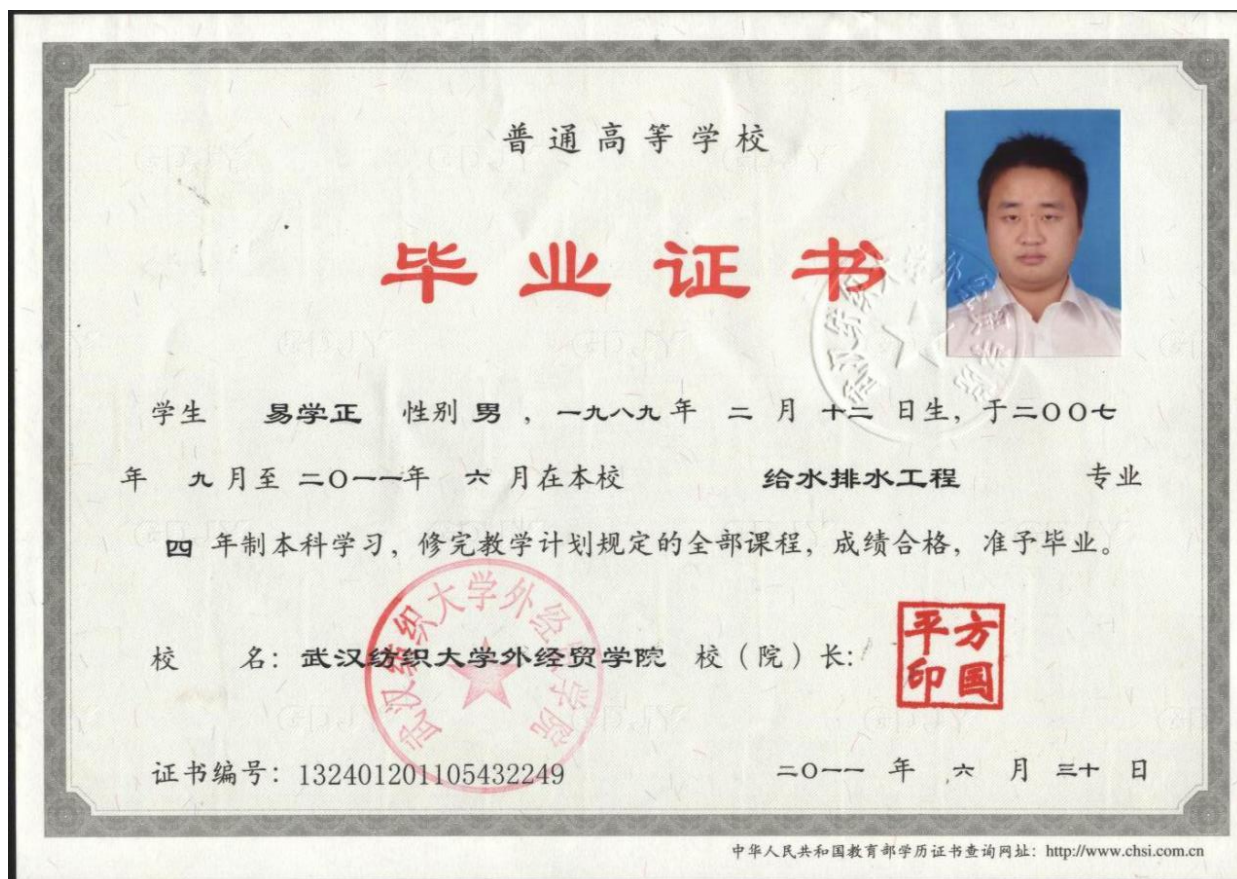 普通高等学校
毕业证书
学生 易学正 性别 男 ，一九八九 年 二 月 十二 日生，于二〇〇七
年 九 月至 二〇一一年 六 月在本校 给水排水工程 专业
四 年制本科学习，修完教学计划规定的全部课程，成绩合格，准予毕业。
校 名：武汉纺织大学外经贸学院 校（院）长：
平方
印国
武汉纺织大学外经贸学院
证书编号：132401201105432249 二〇一一 年 六 月 三十 日
中华人民共和国教育部学历证书查询网址：http://www.chsi.com.cn